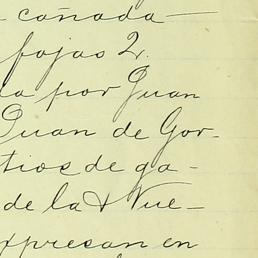 cañada —
fojas 2.
da por Juan
Juan de Gor-
tios de ga-
de la & Nue-
xpresan en